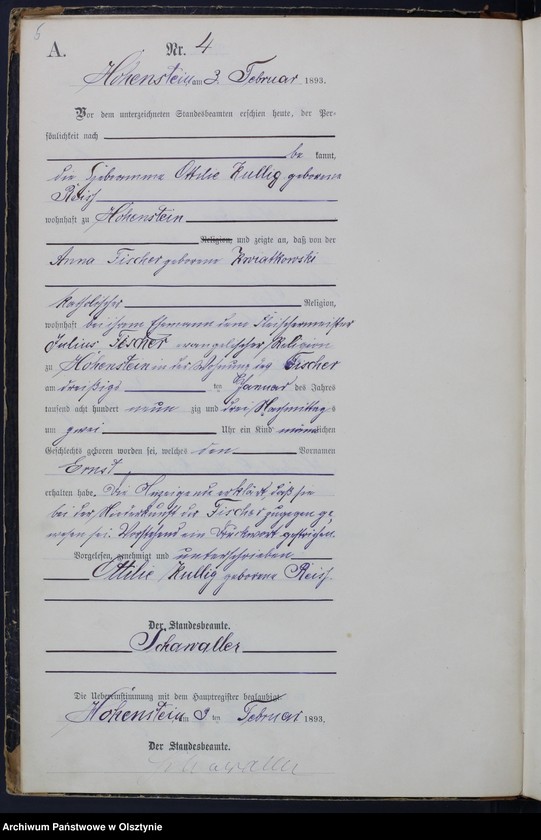 6
A.
Nr. 4
Hohenstein am 3. Februar 1893.
Vor dem unterzeichneten Standesbeamten erschien heute, der Per-
sönlichkeit nach
be kannt,
die Hebeamme Ottilie Kullig geborene
Reiß
wohnhaft zu Hohenstein
Religion, und zeigte an, daß von der
Anna Fischer geborene Kwiatkowski
katholischer Religion,
wohnhaft bei ihrem Ehemann dem Fleischermeister
Julius Fischer evangelischer Religion
zu Hohenstein in der Wohnung des Fischer
am dreißigs ten Januar des Jahres
tausend acht hundert neun zig und drei Nachmittags
um zwei Uhr ein Kind männlichen
Geschlechts geboren worden sei, welches den Vornamen
Ernst
erhalten habe. Die Anzeigende erklärt, daß sie
bei der Niederkunft der Fischer zugegen ge
wesen sei. Vorstehend ein Druckwort gestrichen.
Vorgelesen, genehmigt und unterschrieben.
Ottilie Kullig geborene Reiß
Der Standesbeamte.
Schawaller
Die Uebereinstimmung mit dem Hauptregister beglaubigt
Hohenstein am 3 ten Februar 1893.
Der Standesbeamte.
Schawaller
Archiwum Państwowe w Olsztynie